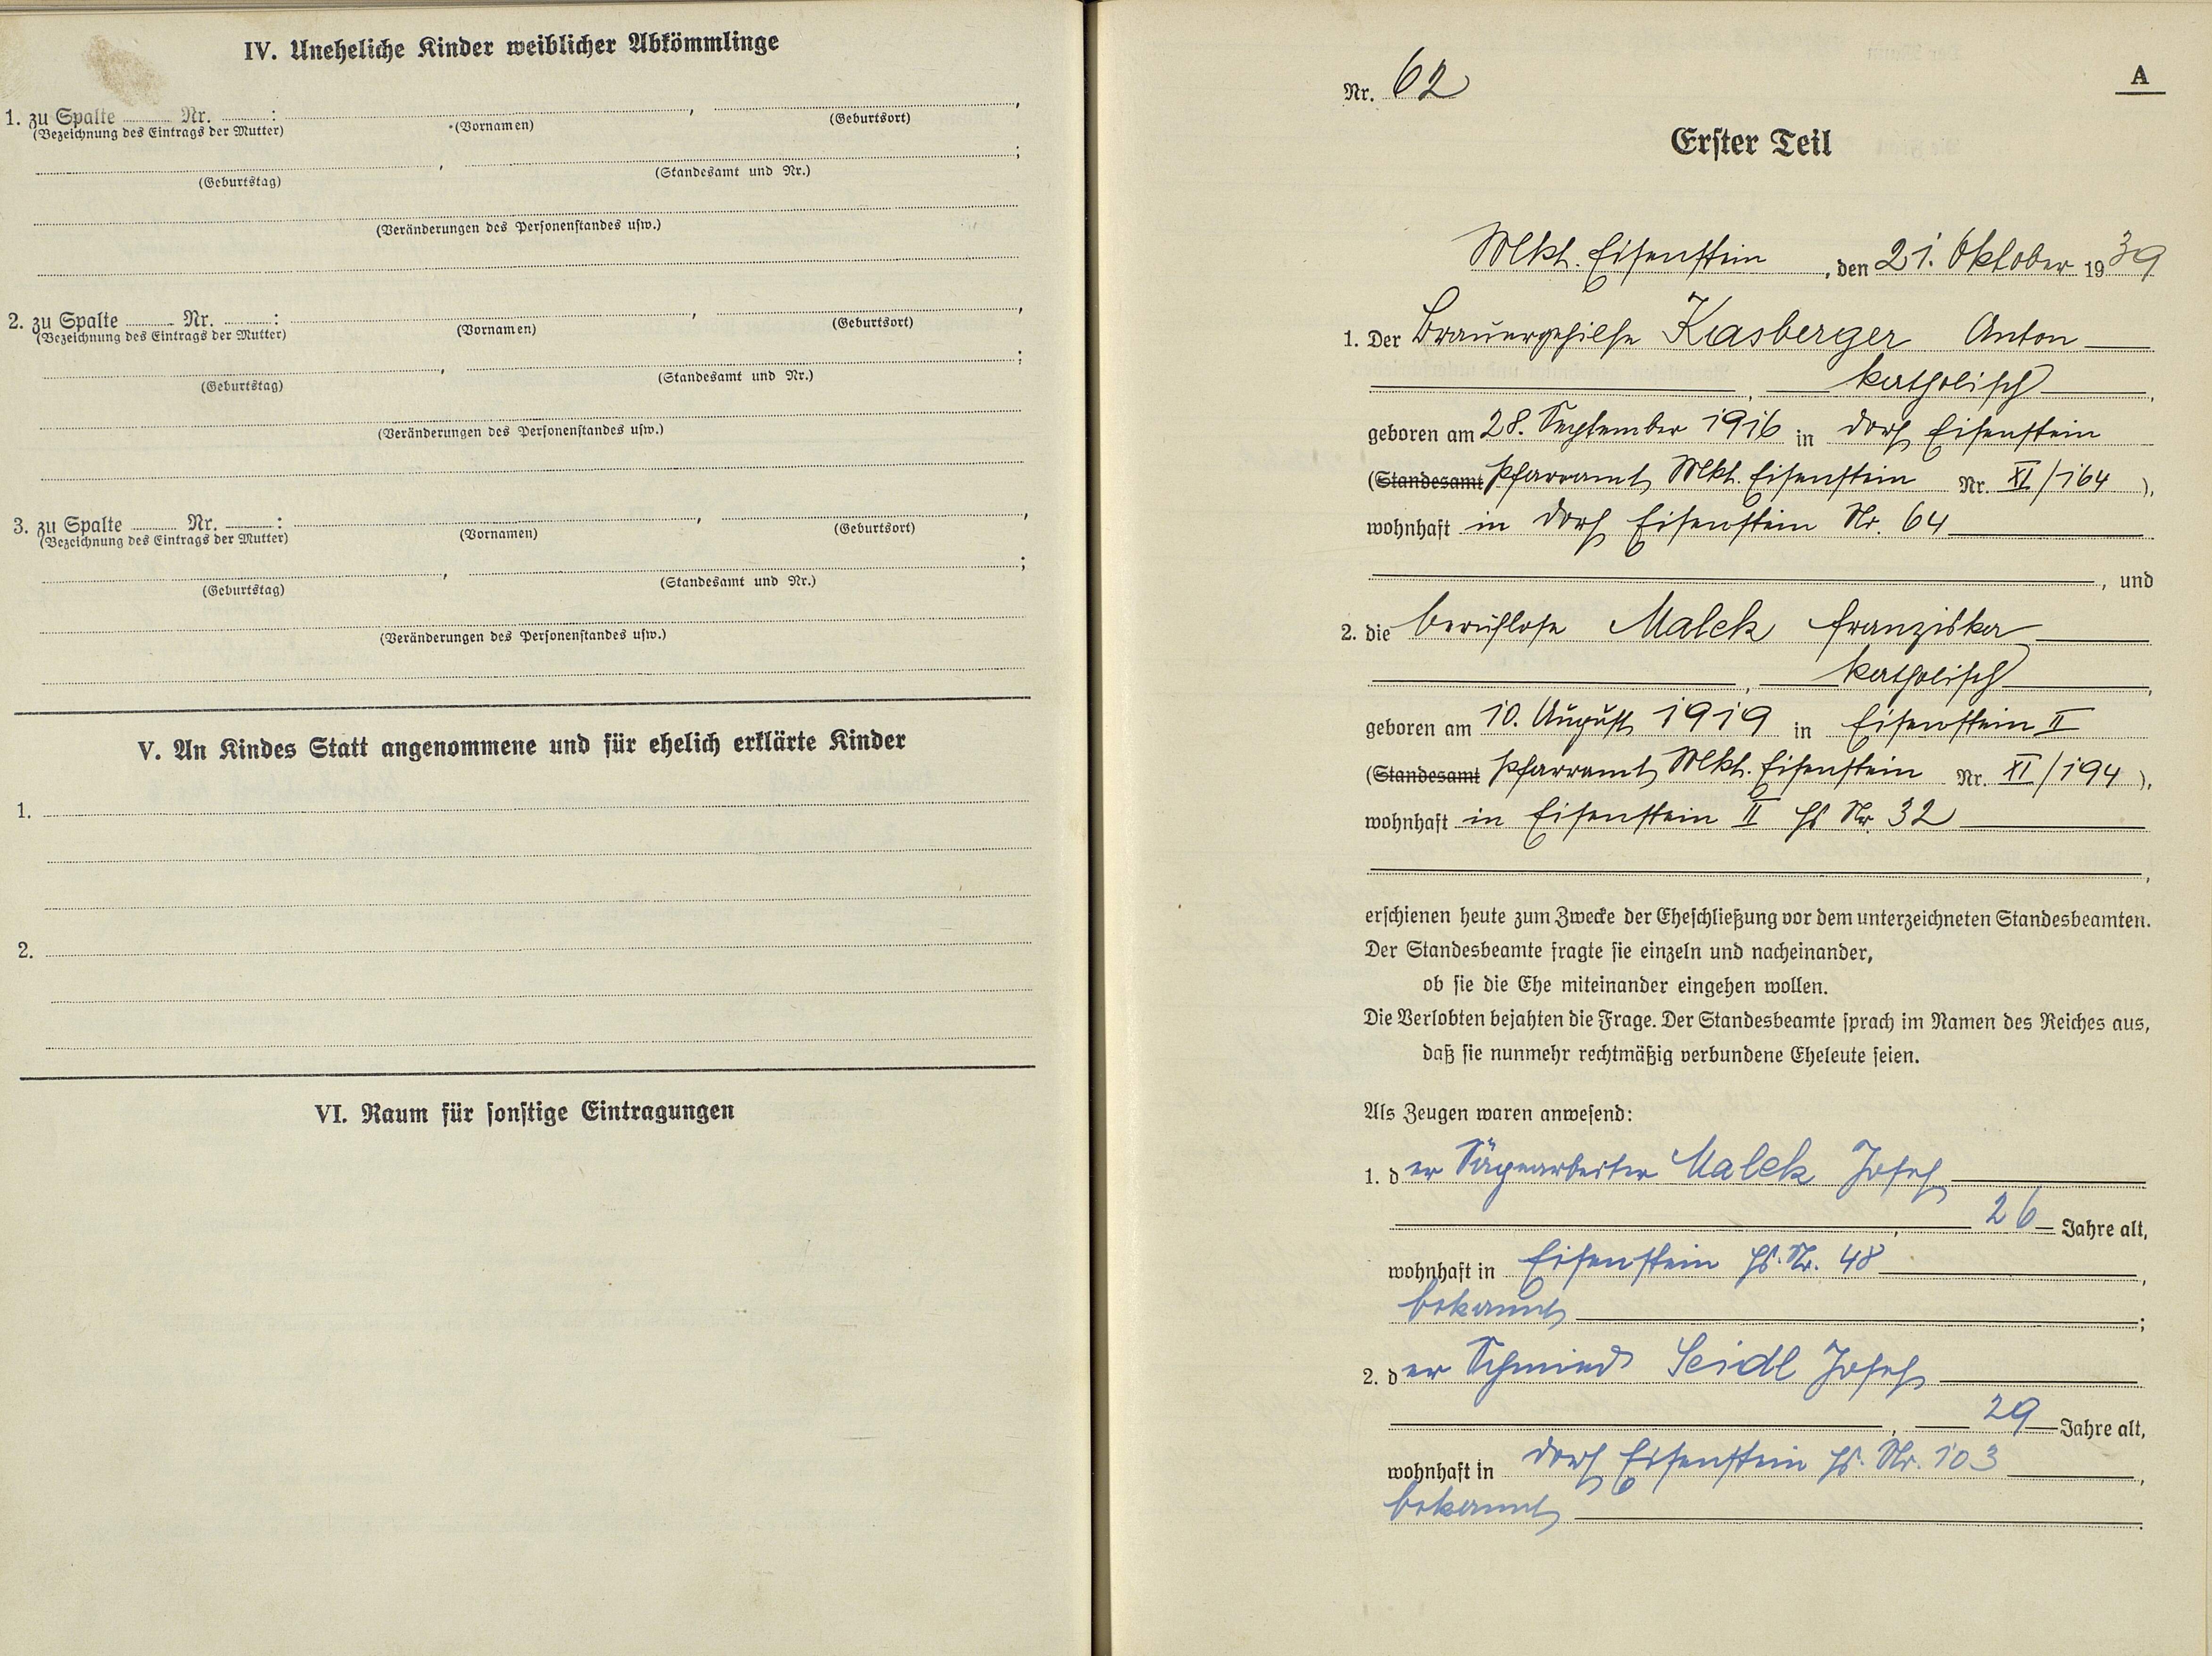 IV. Uneheliche Kinder weiblicher Abkömmlinge
1. zu Spalte ........ Nr. ........:
(Bezeichnung des Eintrags der Mutter) (Vornamen) , (Geburtsort) ,
(Geburtstag) , (Standesamt und Nr.) ;
(Veränderungen des Personenstandes usw.)
2. zu Spalte ........ Nr. ........:
(Bezeichnung des Eintrags der Mutter) (Vornamen) , (Geburtsort) ,
(Geburtstag) , (Standesamt und Nr.) ;
(Veränderungen des Personenstandes usw.)
3. zu Spalte ........ Nr. ........:
(Bezeichnung des Eintrags der Mutter) (Vornamen) , (Geburtsort) ,
(Geburtstag) , (Standesamt und Nr.) ;
(Veränderungen des Personenstandes usw.)
V. An Kindes Statt angenommene und für ehelich erklärte Kinder
1.
2.
VI. Raum für sonstige Eintragungen
Nr. 62
A
Erster Teil
Mkt. Eisenstein, den 21. Oktober 1939
1. Der Brauergehilfe Kasberger Anton
, katholisch,
geboren am 28. September 1916 in Dorf Eisenstein
(Standesamt Pfarramt Mkt. Eisenstein Nr. XI/164),
wohnhaft in Dorf Eisenstein Nr. 64
, und
2. die berufslose Malek Franziska
, katholisch,
geboren am 10. August 1919 in Eisenstein II
(Standesamt Pfarramt Mkt. Eisenstein Nr. XI/194),
wohnhaft in Eisenstein II Hs Nr. 32
,
erschienen heute zum Zwecke der Eheschließung vor dem unterzeichneten Standesbeamten.
Der Standesbeamte fragte sie einzeln und nacheinander,
ob sie die Ehe miteinander eingehen wollen.
Die Verlobten bejahten die Frage. Der Standesbeamte sprach im Namen des Reiches aus,
daß sie nunmehr rechtmäßig verbundene Eheleute seien.
Als Zeugen waren anwesend:
1. der Sägearbeiter Malek Josef
, 26 Jahre alt,
wohnhaft in Eisenstein Hs. Nr. 48,
bekannt;
2. der Schmied Seidl Josef
, 29 Jahre alt,
wohnhaft in Dorf Eisenstein Hs. Nr. 103,
bekannt.